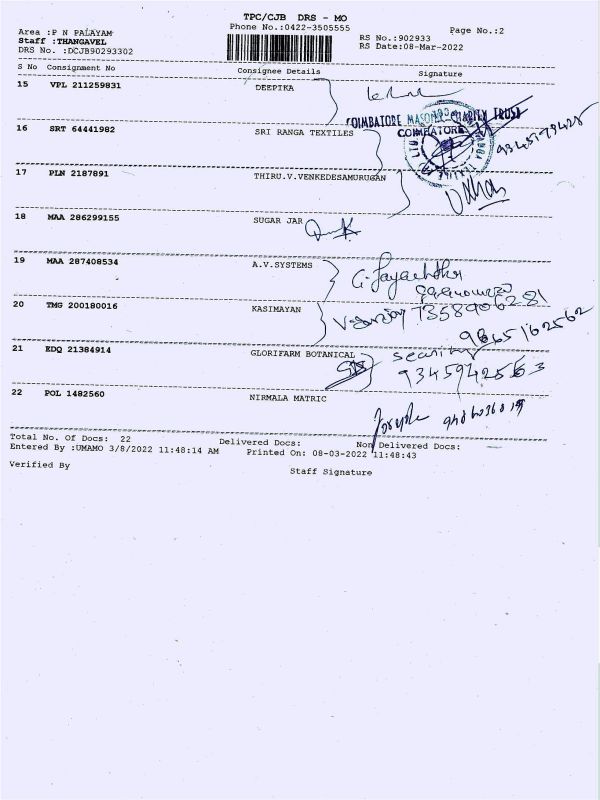 TPC/CJB DRS - MO
Phone No.:0422-3505555
Page No.:2
Area :P N PALAYAM
Staff :THANGAVEL
DRS No. :DCJB90293302
RS No.:902933
RS Date:08-Mar-2022
S No Consignment No Consignee Details Signature
15 VPL 211259831 DEEPIKA
COIMBATORE MASONIC CHARITY TRUST
COIMBATORE
16 SRT 64441982 SRI RANGA TEXTILES
17 PLN 2187891 THIRU.V.VENKEDESAMURUGAN
18 MAA 286299155 SUGAR JAR
19 MAA 287408534 A.V.SYSTEMS
20 TMG 200180016 KASIMAYAN
7358906281
9865162562
21 EDQ 21384914 GLORIFARM BOTANICAL
security
9345942563
22 POL 1482560 NIRMALA MATRIC
Total No. Of Docs: 22 Delivered Docs: Non Delivered Docs:
Entered By :UMAMO 3/8/2022 11:48:14 AM Printed On: 08-03-2022 11:48:43
Verified By Staff Signature